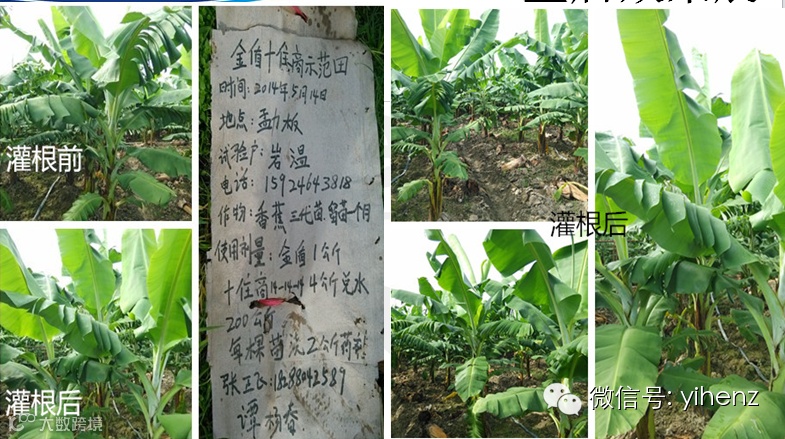 灌根前
灌根后
大数跨境
金盾十住商示范田
时间:2014年5月14日
地点:勐板
试验户:岩温
电话:15924643818
作物:香蕉 三代苗.留苗一个月
使用剂量:金盾1公斤
十住商14-14-14 4公斤兑水
200公斤
每棵苗浇2公斤药料
张工飞:18288042589
灌根后
微信号: yihenz